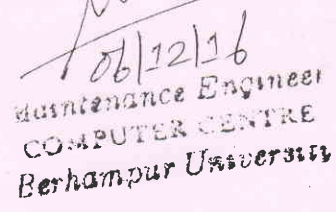 06/12/16
Maintenance Engineer
COMPUTER CENTRE
Berhampur University